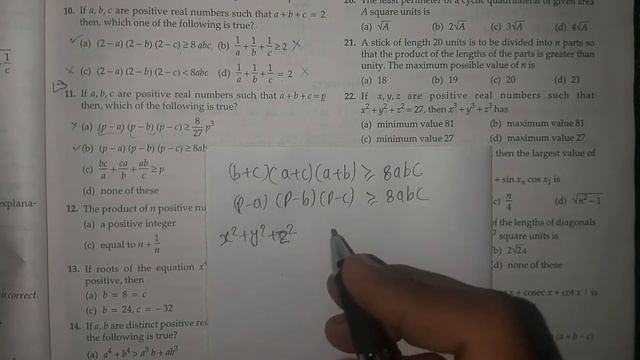 10. If a, b, c are positive real numbers such that a + b + c = 2
then, which one of the following is true?
(a) (2 − a)(2 − b)(2 − c) ≥ 8 abc (b) 1/a + 1/b + 1/c ≥ 2
(c) (2 − a)(2 − b)(2 − c) < 8abc (d) 1/a + 1/b + 1/c = 2
11. If a, b, c are positive real numbers such that a + b + c = p
then, which of the following is true?
(a) (p − a)(p − b)(p − c) ≥ 8/27 p³
(b) (p − a)(p − b)(p − c) ≥ 8ab
(c) bc/a + ca/b + ab/c ≥ p
(d) none of these
12. The product of n positive
(a) a positive integer
(c) equal to n + 1/n
13. If roots of the equation x⁴
positive, then
(a) b = 8 = c
(c) b = 24, c = −32
14. If a, b are distinct positive
the following is true?
(a) a⁴ + b⁴ > a³b + ab³
(b+c)(a+c)(a+b) ≥ 8abc
(p-a)(p-b)(p-c) ≥ 8abc
x²+y²+z²
A square units is
(a) √A (b) 2√A (c) 3√A (d) 4√A
21. A stick of length 20 units is to be divided into n parts so
that the product of the lengths of the parts is greater than
unity. The maximum possible value of n is
(a) 18 (b) 19 (c) 20 (d) 21
22. If x, y, z are positive real numbers such that
x² + y² + z² = 27, then x³ + y³ + z³ has
(a) minimum value 81 (b) maximum value 81
(c) minimum value 27 (d) maximum value 27
then the largest value of
+ sin xₙ cos x₁ is
(c) n/4 (d) √n² − 1
of the lengths of diagonals
square units is
(b) 2√2a
(d) none of these
x + cosec x + cot x
(a + b − c)
is correct.